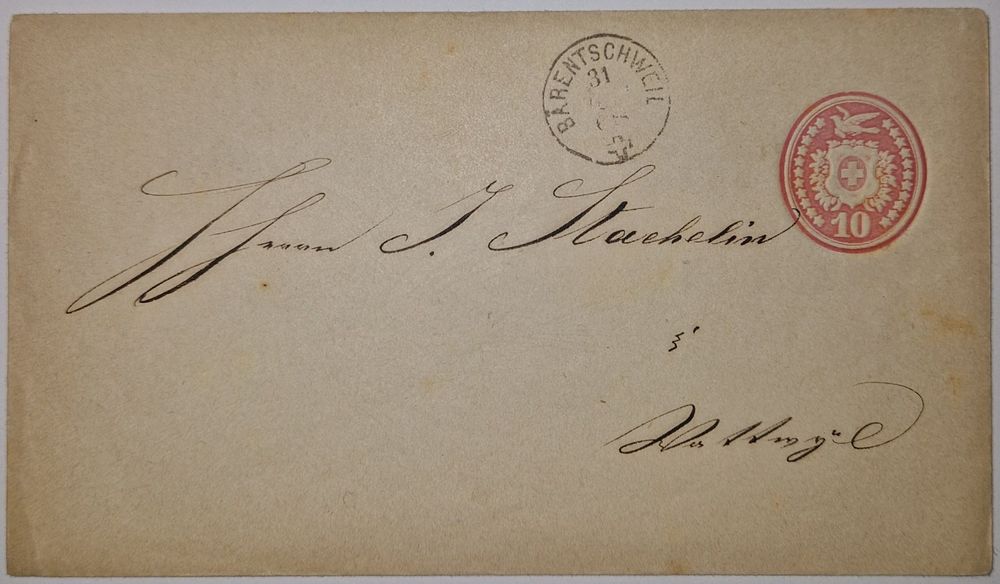 BÄRENTSCHWEIL
31
10
Herrn J. Staehelin
Wattwÿl